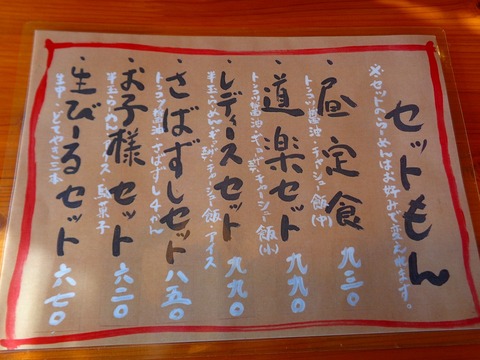 セットもん
※セットのらーめんはお好みで変えれます。
・昼定食 九三〇
トンコツ醤油・チャーシュー飯(中)
・道楽セット 九九〇
トンコツ醤油・チャーシュー飯(小)
・レディースセット 九九〇
半玉らーめん・チャーシュー飯・アイス
・さばずしセット 八五〇
トンコツ醤油・さばずし4かん
・お子様セット 六二〇
半玉らーめん・アイス・駄菓子
・生びーるセット 六七〇
生中・どてやき二本